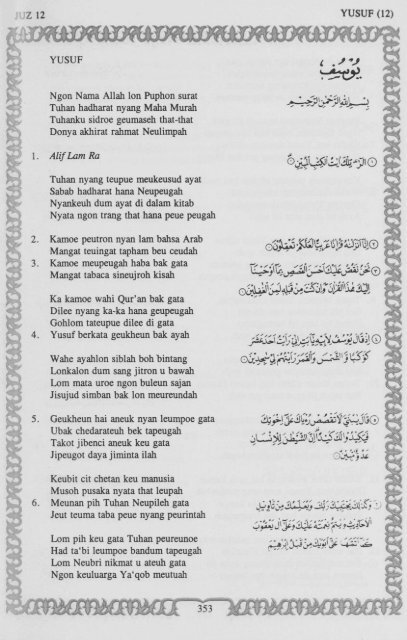 JUZ 12
YUSUF (12)
YUSUF
يُوسُف
Ngon Nama Allah lon Puphon surat
Tuhan hadharat nyang Maha Murah
Tuhanku sidroe geumaseh that-that
Donya akhirat rahmat Neulimpah
بِسْمِ اللهِ الرَّحْمٰنِ الرَّحِيْمِ
1. Alif Lam Ra
الۤرٰ تِلْكَ اٰيٰتُ الْكِتٰبِ الْمُبِيْنِ ۝١
Tuhan nyang teupue meukeusud ayat
Sabab hadharat hana Neupeugah
Nyankeuh dum ayat di dalam kitab
Nyata ngon trang that hana peue peugah
2. Kamoe peutron nyan lam bahsa Arab
Mangat teuingat tapham beu ceudah
اِنَّآ اَنْزَلْنٰهُ قُرْاٰنًا عَرَبِيًّا لَّعَلَّكُمْ تَعْقِلُوْنَ ۝٢
3. Kamoe meupeugah haba bak gata
Mangat tabaca sineujroh kisah
نَحْنُ نَقُصُّ عَلَيْكَ اَحْسَنَ الْقَصَصِ بِمَآ اَوْحَيْنَآ
اِلَيْكَ هٰذَا الْقُرْاٰنَ وَاِنْ كُنْتَ مِنْ قَبْلِهٖ لَمِنَ الْغٰفِلِيْنَ ۝٣
Ka kamoe wahi Qur'an bak gata
Dilee nyang ka-ka hana geupeugah
Gohlom tateupue dilee di gata
4. Yusuf berkata geukheun bak ayah
اِذْ قَالَ يُوْسُفُ لِاَبِيْهِ يٰٓاَبَتِ اِنِّيْ رَاَيْتُ اَحَدَ عَشَرَ
كَوْكَبًا وَّالشَّمْسَ وَالْقَمَرَ رَاَيْتُهُمْ لِيْ سٰجِدِيْنَ ۝٤
Wahe ayahlon siblah boh bintang
Lonkalon dum sang jitron u bawah
Lom mata uroe ngon buleun sajan
Jisujud simban bak lon meureundah
5. Geukheun hai aneuk nyan leumpoe gata
Ubak chedarateuh bek tapeugah
Takot jibenci aneuk keu gata
Jipeugot daya jiminta ilah
قَالَ يٰبُنَيَّ لَا تَقْصُصْ رُءْيَاكَ عَلٰٓى اِخْوَتِكَ
فَيَكِيْدُوْا لَكَ كَيْدًا اِنَّ الشَّيْطٰنَ لِلْاِنْسَانِ
عَدُوٌّ مُّبِيْنٌ ۝٥
Keubit cit chetan keu manusia
Musoh pusaka nyata that leupah
6. Meunan pih Tuhan Neupileh gata
Jeut teuma taba peue nyang peurintah
وَكَذٰلِكَ يَجْتَبِيْكَ رَبُّكَ وَيُعَلِّمُكَ مِنْ تَأْوِيْلِ
الْاَحَادِيْثِ وَيُتِمُّ نِعْمَتَهٗ عَلَيْكَ وَعَلٰٓى اٰلِ يَعْقُوْبَ
كَمَآ اَتَمَّهَا عَلٰٓى اَبَوَيْكَ مِنْ قَبْلُ اِبْرٰهِيْمَ
Lom pih keu gata Tuhan peureunoe
Had ta'bi leumpoe bandum tapeugah
Lom Neubri nikmat u ateuh gata
Ngon keuluarga Ya'qob meutuah
353